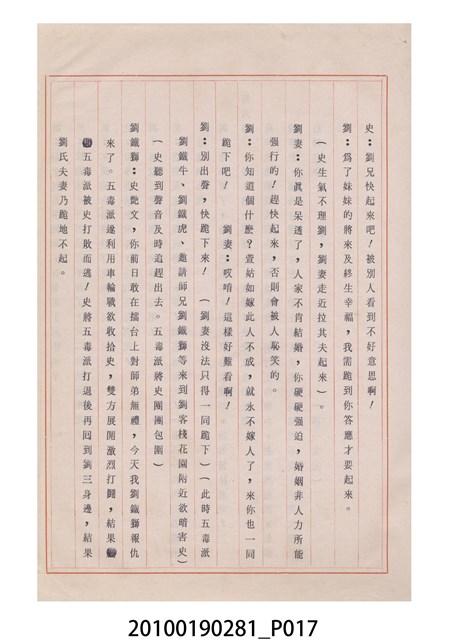 史：劉兄快起來吧！被別人看到不好意思啊！
劉：為了妹妹的將來及終生幸福，我需跪到你答應才要起來。
（史生氣不理劉，劉妻走近拉其夫起來）。
劉妻：你眞是呆透了，人家不肯結婚，你硬硬强迫，婚姻非人力所能
强行的！趕快起來，否則會被人恥笑的。
劉：你知道個什麼？萱姑如嫁此人不成，就永不嫁人了，來你也一同
跪下吧！　　劉妻：哎唷！這樣好難看啊！
劉：別出聲，快跪下來！　（劉妻沒法只得一同跪下）（此時五毒派
劉鐵牛、劉鐵虎、邀請師兄劉鐵獅等來到劉客棧花園附近欲暗害史）
（史聽到聲音及時追趕出去。五毒派將史團團包圍）
劉鐵獅：史艷文，你前日敢在擂台上對師弟無禮，今天我劉鐵獅報仇
來了。五毒派遂利用車輪戰欲收拾史，雙方展開激烈打鬪，結果
五毒派被史打敗而逃！史將五毒派打退後再囘到劉三身邊，結果
劉氏夫妻乃跪地不起。
20100190281_P017